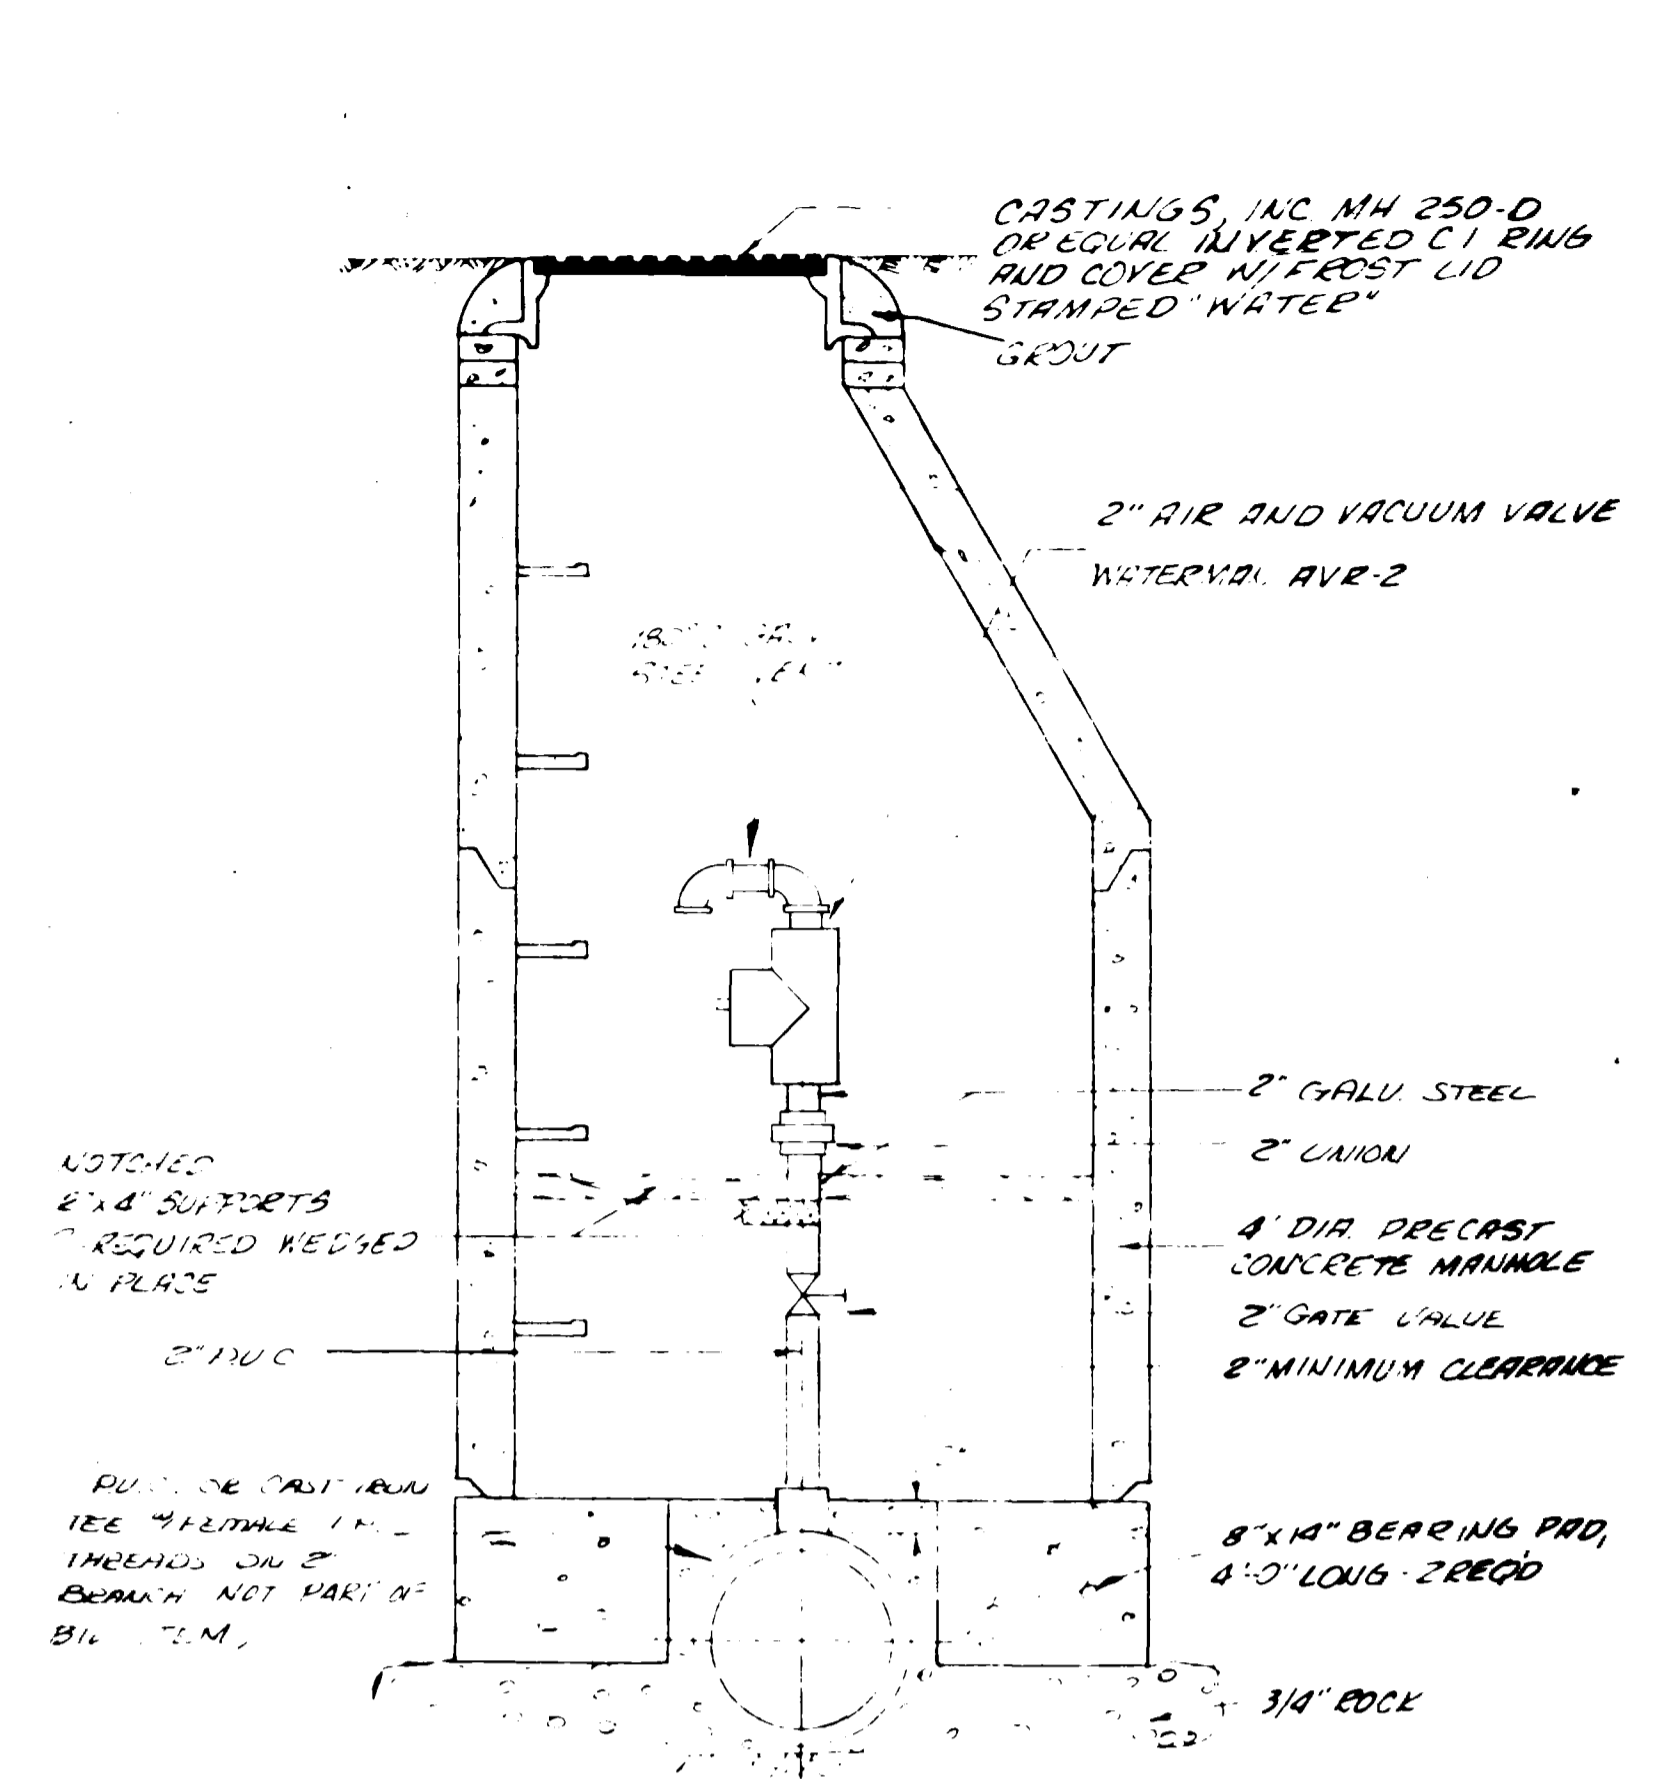 CASTINGS, INC. MH 250-D
OR EQUAL INVERTED C I RING
AND COVER W/FROST LID
STAMPED "WATER"
GROUT
2" AIR AND VACUUM VALVE
AVR-2
STEEL
2" GALV. STEEL
2" UNION
NOTCHED
2"x4" SUPPORTS
REQUIRED WEDGED
IN PLACE
4' DIA. PRECAST
CONCRETE MANHOLE
2" GATE VALVE
2" PVC
2" MINIMUM CLEARANCE
OR CAST IRON
TEE W/FEMALE
THREADS ON 2"
BRANCH NOT PART OF
8"x14" BEARING PAD,
4'-0" LONG - 2 REQ'D
3/4" ROCK